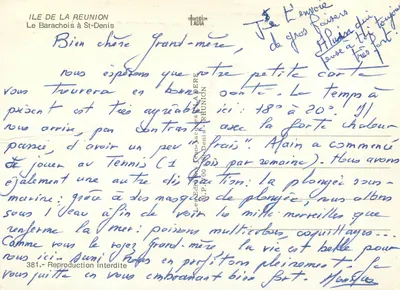 ILE DE LA REUNION
Le Barachois à St-Denis
Je t'envoie
de gros baisers
qui
pense à toi toujours
très fort!
Bien chère Grand-mère,
nous espérons que notre petite carte
vous trouvera en bonne santé. Le temps à
présent est très agréable ici : 18° à 20°. Il
nous arrive, par contraste avec la forte chaleur
passée, d'avoir un peu "frais". Alain a commencé
de jouer au Tennis (1 fois par semaine). Nous avons
également une autre distraction: la plongée sous-
marine: grâce à des masques de plongée, nous allons
sous l'eau afin de voir les mille merveilles que
renferme la mer: poissons multicolores, coquillages...
Comme vous le voyez Grand-mère la vie est belle pour
nous ici. Aussi nous en profitons pleinement. Je
vous quitte en vous embrassant bien fort.
381.- Reproduction interdite